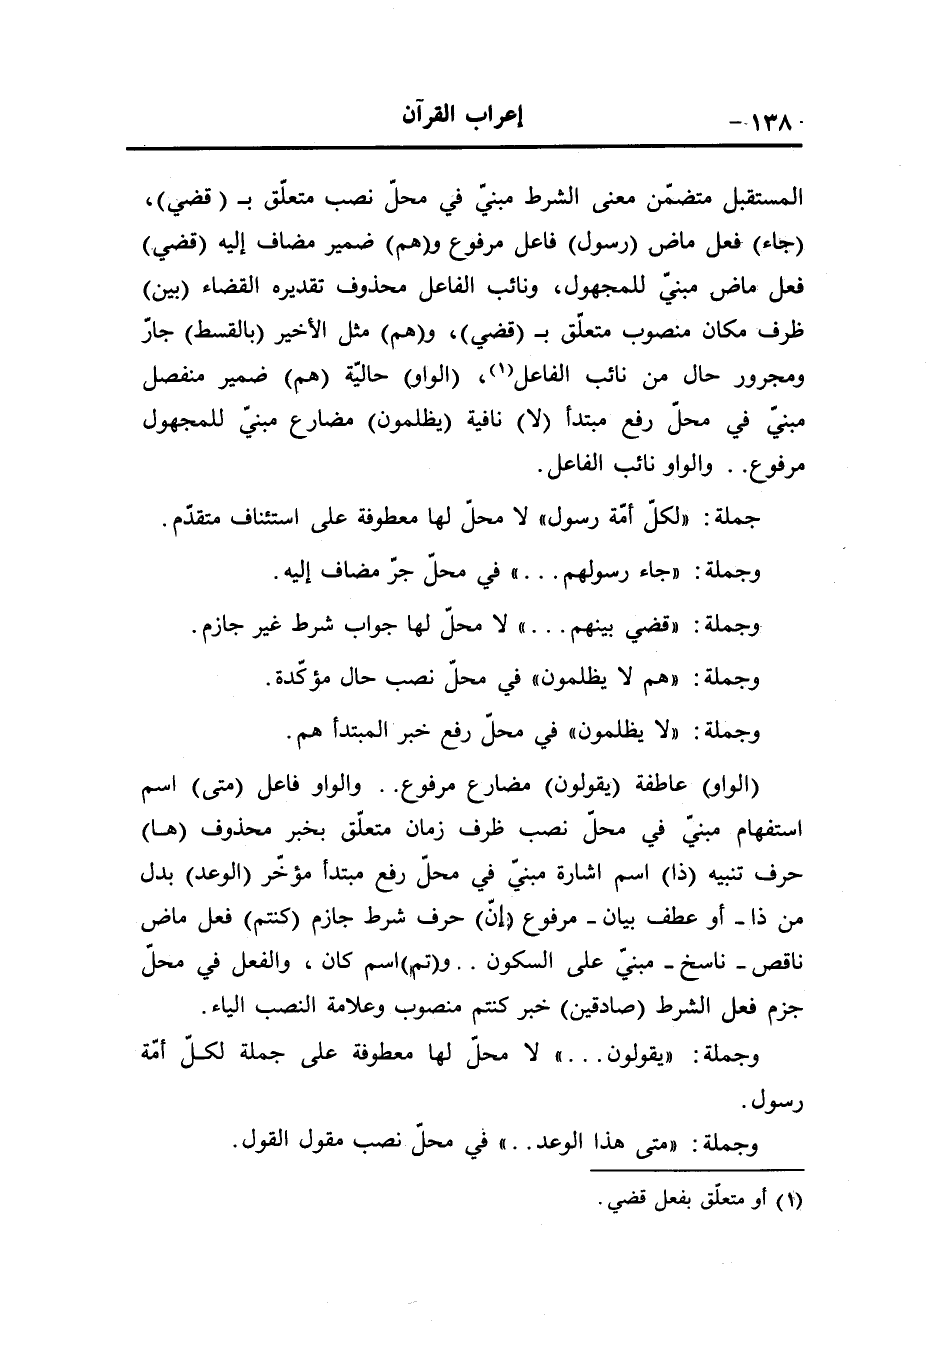 ١٣٨- إعراب القرآن
المستقبل متضمّن معنى الشرط مبنيّ في محلّ نصب متعلّق بـ ( قضي)،
(جاء) فعل ماض (رسول) فاعل مرفوع و(هم) ضمير مضاف إليه (قضي)
فعل ماض مبنيّ للمجهول، ونائب الفاعل محذوف تقديره القضاء (بين)
ظرف مكان منصوب متعلّق بـ (قضي)، و(هم) مثل الأخير (بالقسط) جارّ
ومجرور حال من نائب الفاعل(١)، (الواو) حاليّة (هم) ضمير منفصل
مبنيّ في محلّ رفع مبتدأ (لا) نافية (يظلمون) مضارع مبنيّ للمجهول
مرفوع.. والواو نائب الفاعل.
جملة: «لكلّ أمّة رسول» لا محلّ لها معطوفة على استئناف متقدّم.
وجملة: «جاء رسولهم...» في محلّ جرّ مضاف إليه.
وجملة: «قضي بينهم...» لا محلّ لها جواب شرط غير جازم.
وجملة: «هم لا يظلمون» في محلّ نصب حال مؤكّدة.
وجملة: «لا يظلمون» في محلّ رفع خبر المبتدأ هم.
(الواو) عاطفة (يقولون) مضارع مرفوع.. والواو فاعل (متى) اسم
استفهام مبنيّ في محلّ نصب ظرف زمان متعلّق بخبر محذوف (هـا)
حرف تنبيه (ذا) اسم اشارة مبنيّ في محلّ رفع مبتدأ مؤخّر (الوعد) بدل
من ذا ـ أو عطف بيان ـ مرفوع (إنّ) حرف شرط جازم (كنتم) فعل ماض
ناقص ـ ناسخ ـ مبنيّ على السكون ..و(تم)اسم كان ، والفعل في محلّ
جزم فعل الشرط (صادقين) خبر كنتم منصوب وعلامة النصب الياء.
وجملة: «يقولون...» لا محلّ لها معطوفة على جملة لكـلّ أمّة
رسول.
وجملة: «متى هذا الوعد..» في محلّ نصب مقول القول.
(١) أو متعلّق بفعل قضي.